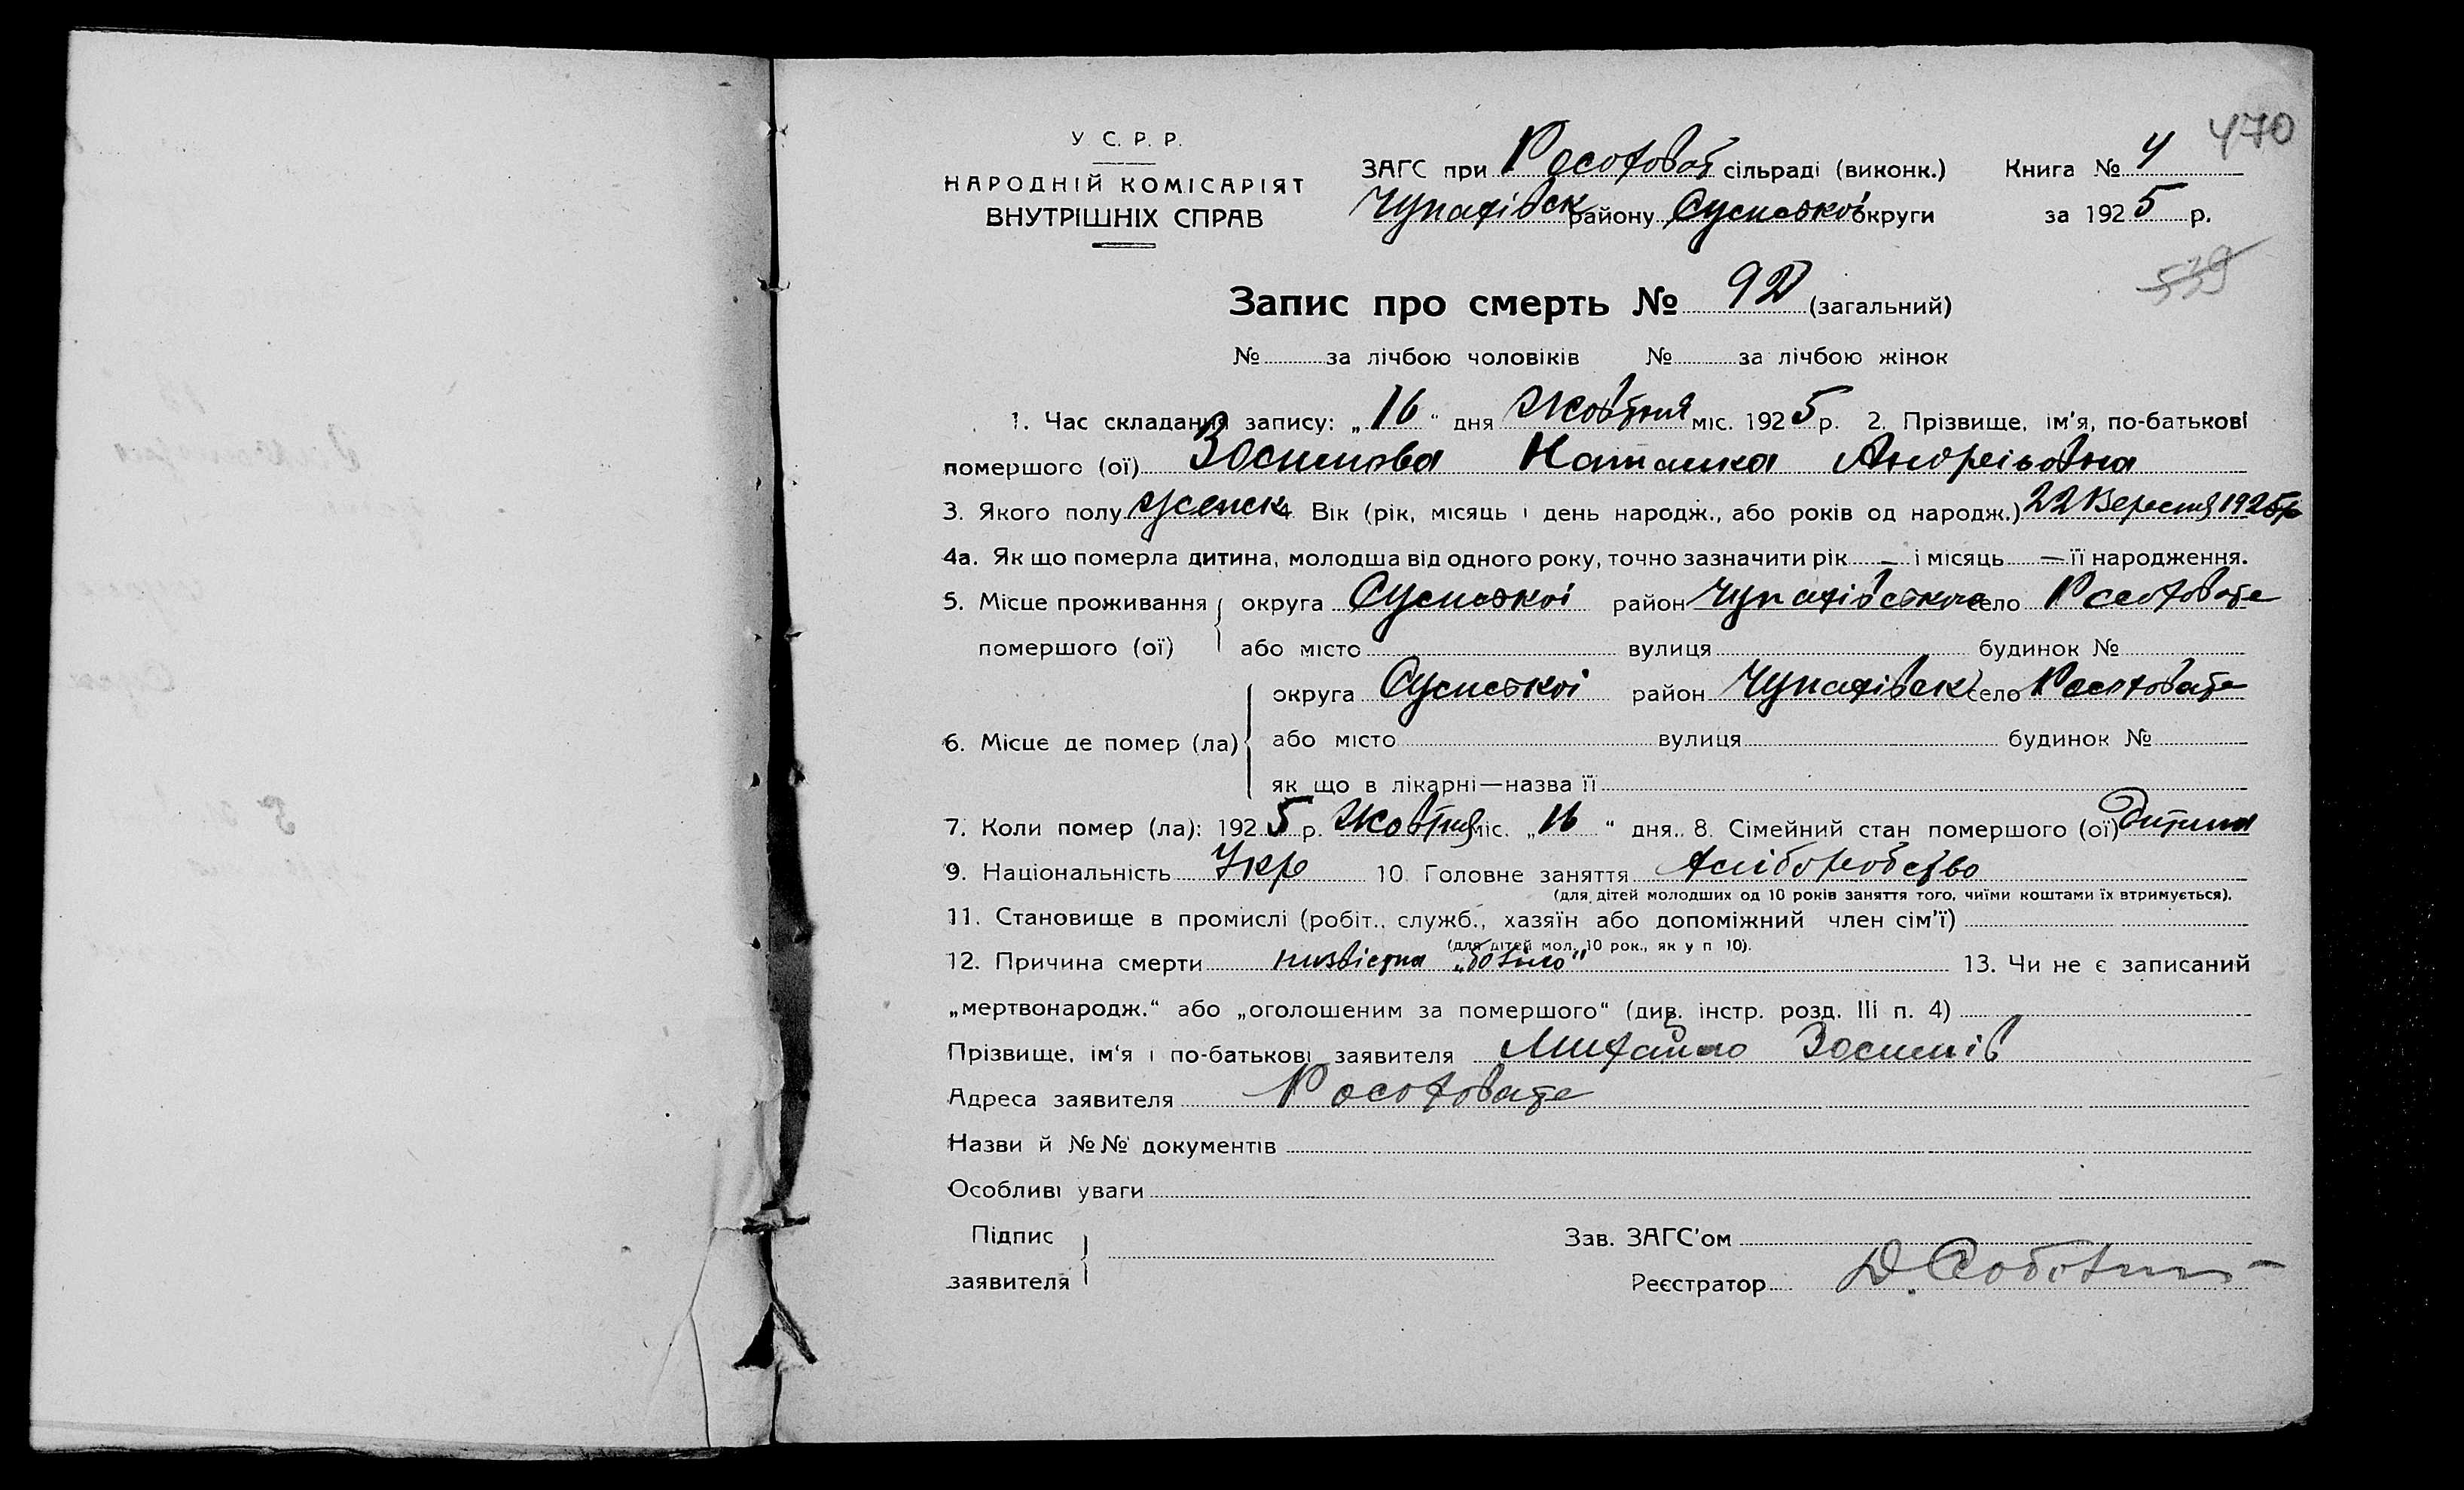 470
У С. Р. Р.
НАРОДНІЙ КОМІСАРІЯТ
ВНУТРІШНІХ СПРАВ
ЗАГС при Росоховат сільраді (виконк.) Книга № 4
Чупахівск району Сумської округи за 1925 р.
539
Запис про смерть № 92 (загальний)
№ за лічбою чоловіків № за лічбою жінок
1. Час складання запису: „16“ дня Жовтня міс. 1925 р. 2. Прізвище, ім’я, по-батькові
помершого (ої) Зосимова Наталка Андреівна
3. Якого полу женск 4. Вік (рік, місяць і день народж., або років од народж.) 22 Вересня 1925р
4а. Як що померла дитина, молодша від одного року, точно зазначити рік — і місяць — її народження.
5. Місце проживання помершого (ої) округа Сумської район Чупахівского село Росоховате
або місто вулиця будинок №
6. Місце де помер (ла) округа Сумської район Чупахівск село Росоховате
або місто вулиця будинок №
як що в лікарні—назва її
7. Коли помер (ла): 1925 р. Жовтня міс. „16“ дня. 8. Сімейний стан помершого (ої) Дитина
9. Національність Укр 10. Головне заняття хліборобство
(для дітей молодших од 10 років заняття того, чиїми коштами їх втримується).
11. Становище в промислі (робіт., служб., хазяїн або допоміжний член сім’ї)
(для дітей мол. 10 рок., як у п 10).
12. Причина смерти 13. Чи не є записаний
„мертвонародж.“ або „оголошеним за помершого“ (див. інстр. розд. III п. 4)
Прізвище, ім’я і по-батькові заявителя Михайло Зосимів
Адреса заявителя Росоховате
Назви й №№ документів
Особливі уваги
Підпис заявителя
Зав. ЗАГС’ом
Реєстратор Д.